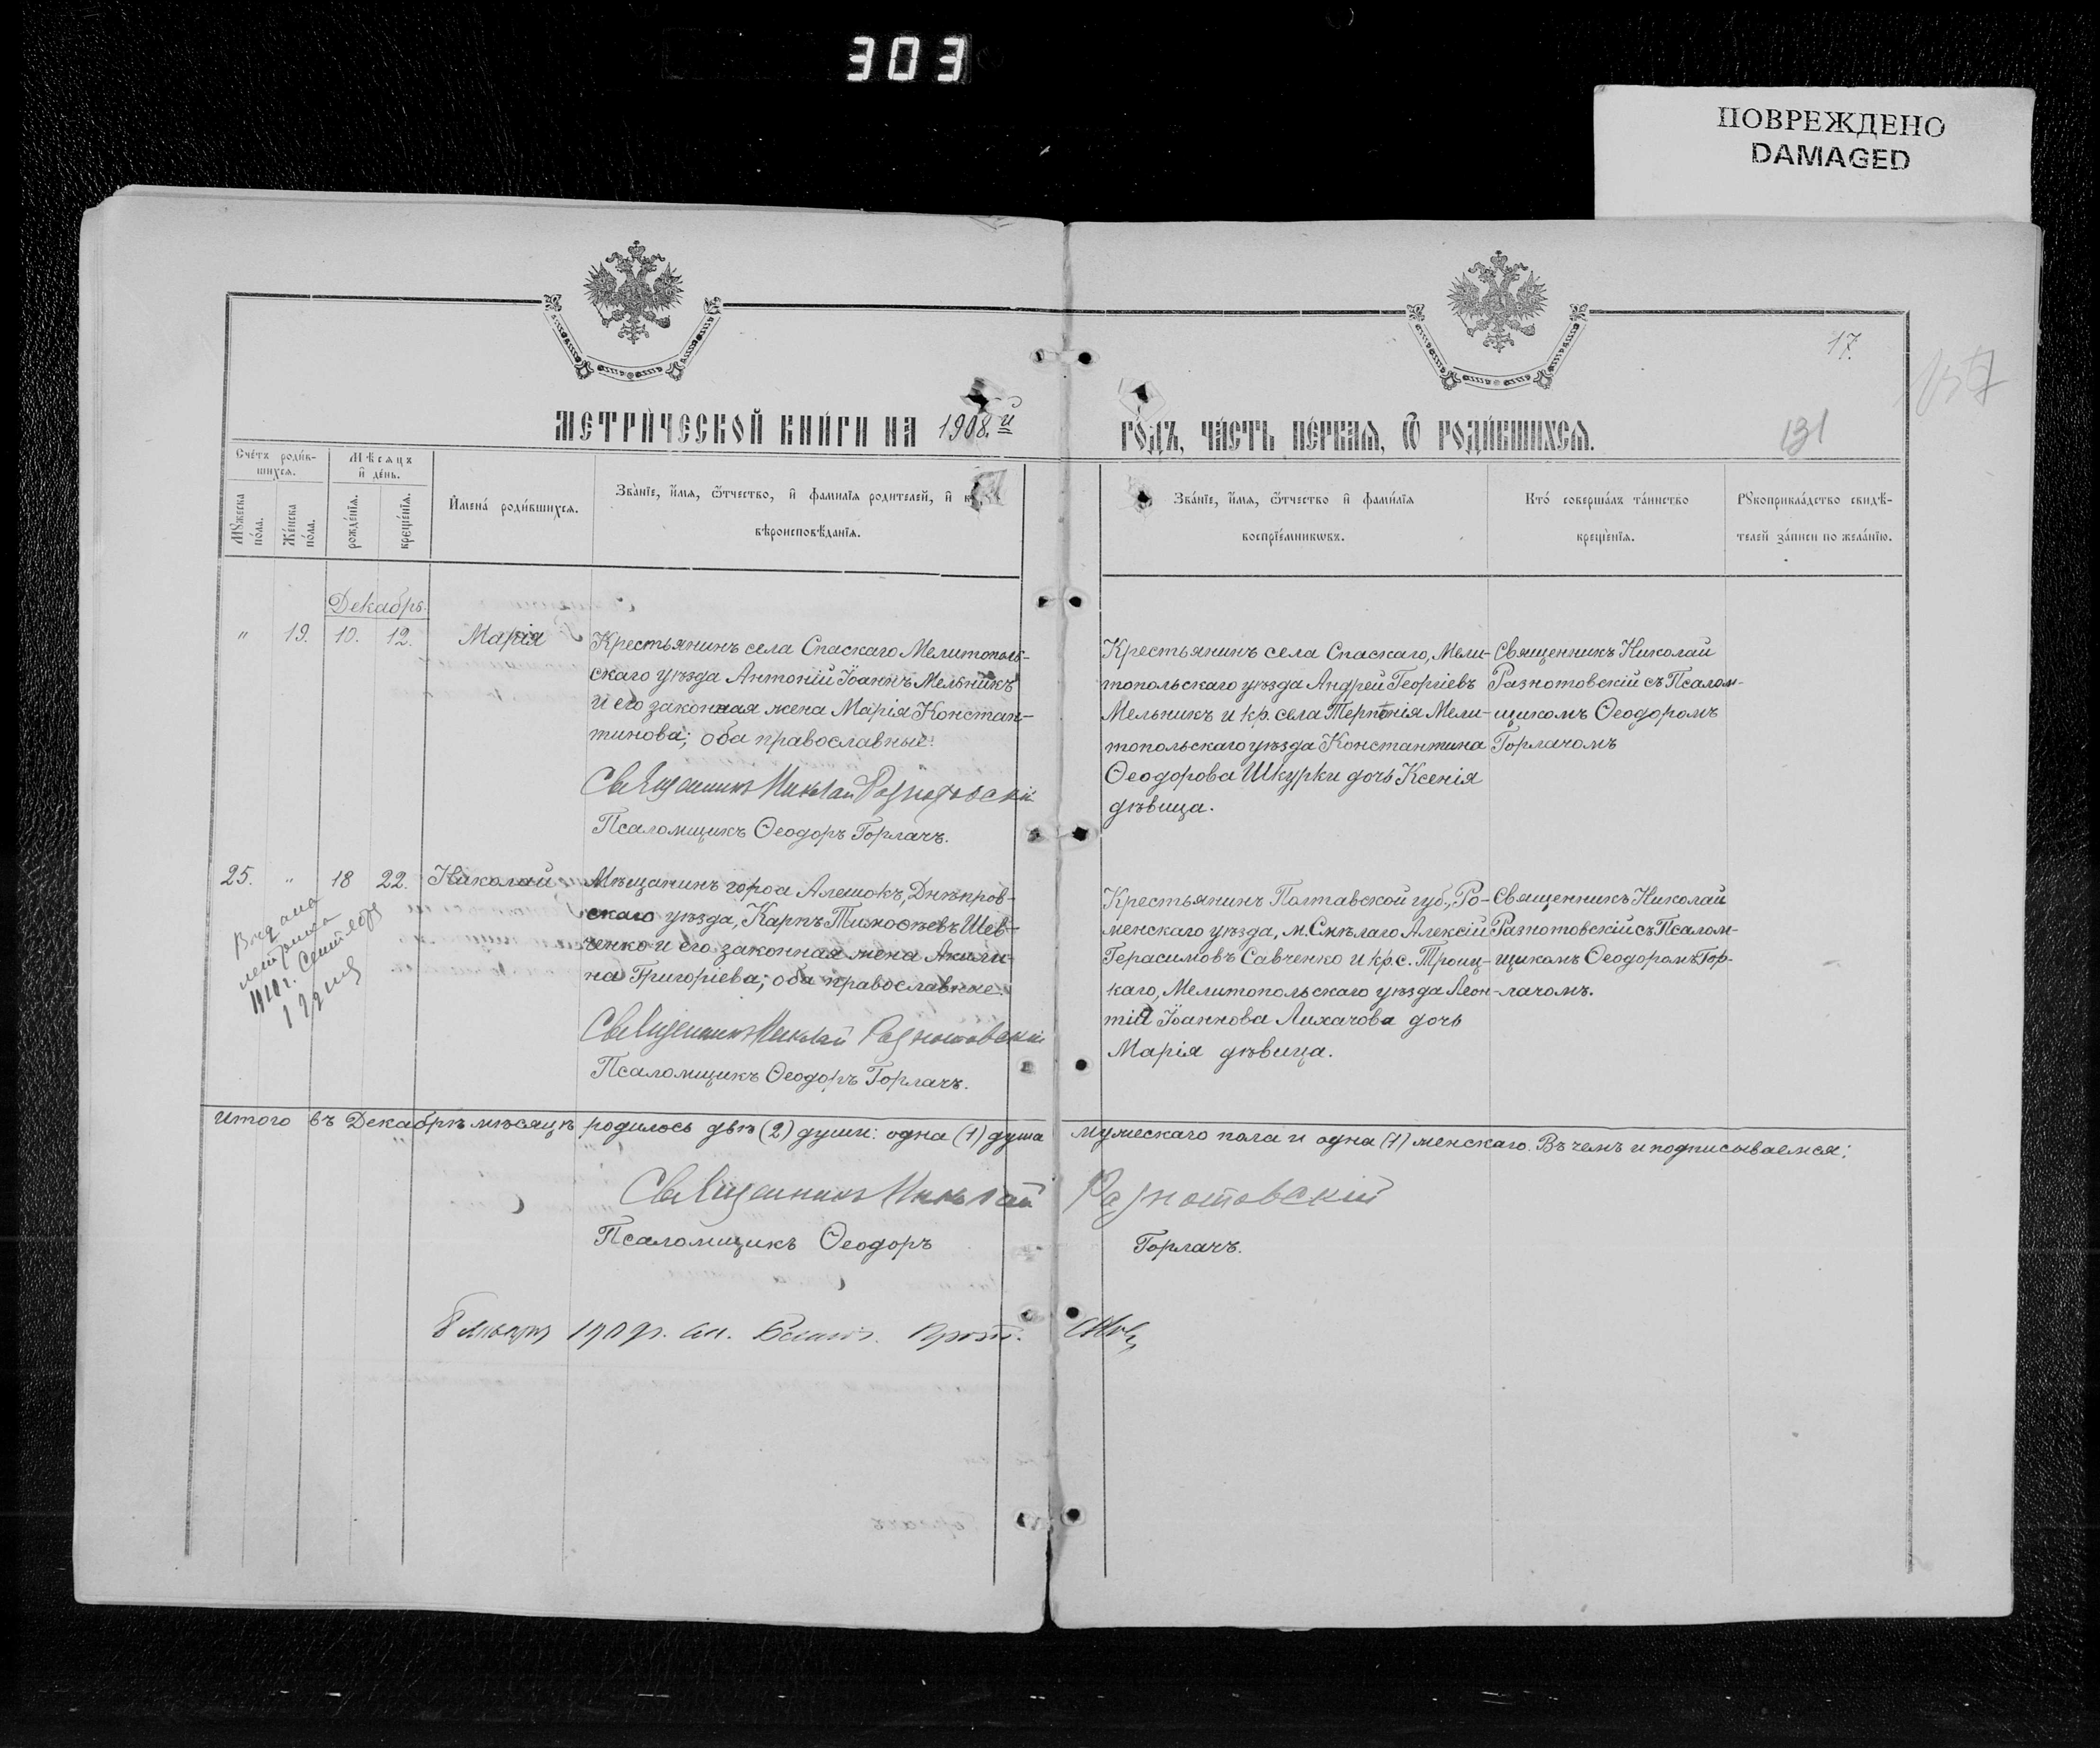 303
ПОВРЕЖДЕНО
DAMAGED
17.
131
МЕТРИ́ЧЕСКОЙ КНИ́ГИ НА 1908.й
ГО́ДЪ, ЧА́СТЬ ПЕ́РВАЯ, Ѿ РОДИ́ВШИХСЯ.
Сче́тъ роди́в-
шихся.
Мѣсяцъ
и҆ де́нь.
Мꙋ́жеска
по́ла.
Же́нска
по́ла.
рожде́нїя.
креще́нїя.
И҆мена́ роди́вшихся.
Зва́нїе, и҆́мя, ѻ҆́тчество, и҆ фами́лїя родителей, и҆
вѣроисповѣ́данїя.
Зва́нїе, и҆́мя, ѻ҆́тчество и҆ фами́лїя
воспрїе́мникѡвъ.
Кто́ соверша́лъ та́инство
креще́нїя.
Рꙋкоприкла́дство свидѣ́-
телей за́писи по жела́нїю.
Декабрь.
" 19. 10. 12. Марія
Крестьянинъ села Спаскаго Мелитополь-
скаго уѣзда Антоній Іоаннъ Мельникъ
и его законная жена Марія Констан-
тинова; оба православные.
Священникъ Николай Разнотовскій
Псаломщикъ Ѳеодоръ Горлачъ.
Крестьянинъ села Спаскаго, Мели-
топольскаго уѣзда Андрей Георгіевъ
Мельникъ и кр. села Терпѣнія Мели-
топольскаго уѣзда Константина
Ѳеодорова Шкурки дочь Ксенія
дѣвица.
Священникъ Николай
Разнотовскій съ Псалом-
щикомъ Ѳеодоромъ
Горлачомъ
25. " 18 22. Николай
Выдана
метрика
1910 г. Сентября
19 дня
Мѣщанинъ город Алешокъ, Днѣпров-
скаго уѣзда, Карпъ Тимоѳѣевъ Шев-
ченко и его законная жена Акили-
на Григоріева; оба православные.
Священникъ Николай Разнотовскій
Псаломщикъ Ѳеодоръ Горлачъ.
Крестьянинъ Полтавской губ., Ро-
менскаго уѣзда, м. Смѣлаго Алексій
Герасимовъ Савченко и кр. с. Троиц-
каго, Мелитопольскаго уѣзда Леон-
тія Іоаннова Лихачова дочь
Марія дѣвица.
Священникъ Николай
Разнотовскій съ Псалом-
щикомъ Ѳеодоромъ Гор-
лачомъ.
Итого въ Декабрѣ мѣсяцѣ родилось двѣ (2) души: одна (1) душа мужескаго пола и одна (1) женскаго. Въ чемъ и подписываемся:
Священникъ Николай Разнотовскій
Псаломщикъ Ѳеодоръ Горлачъ.
8 Января 1909 г.